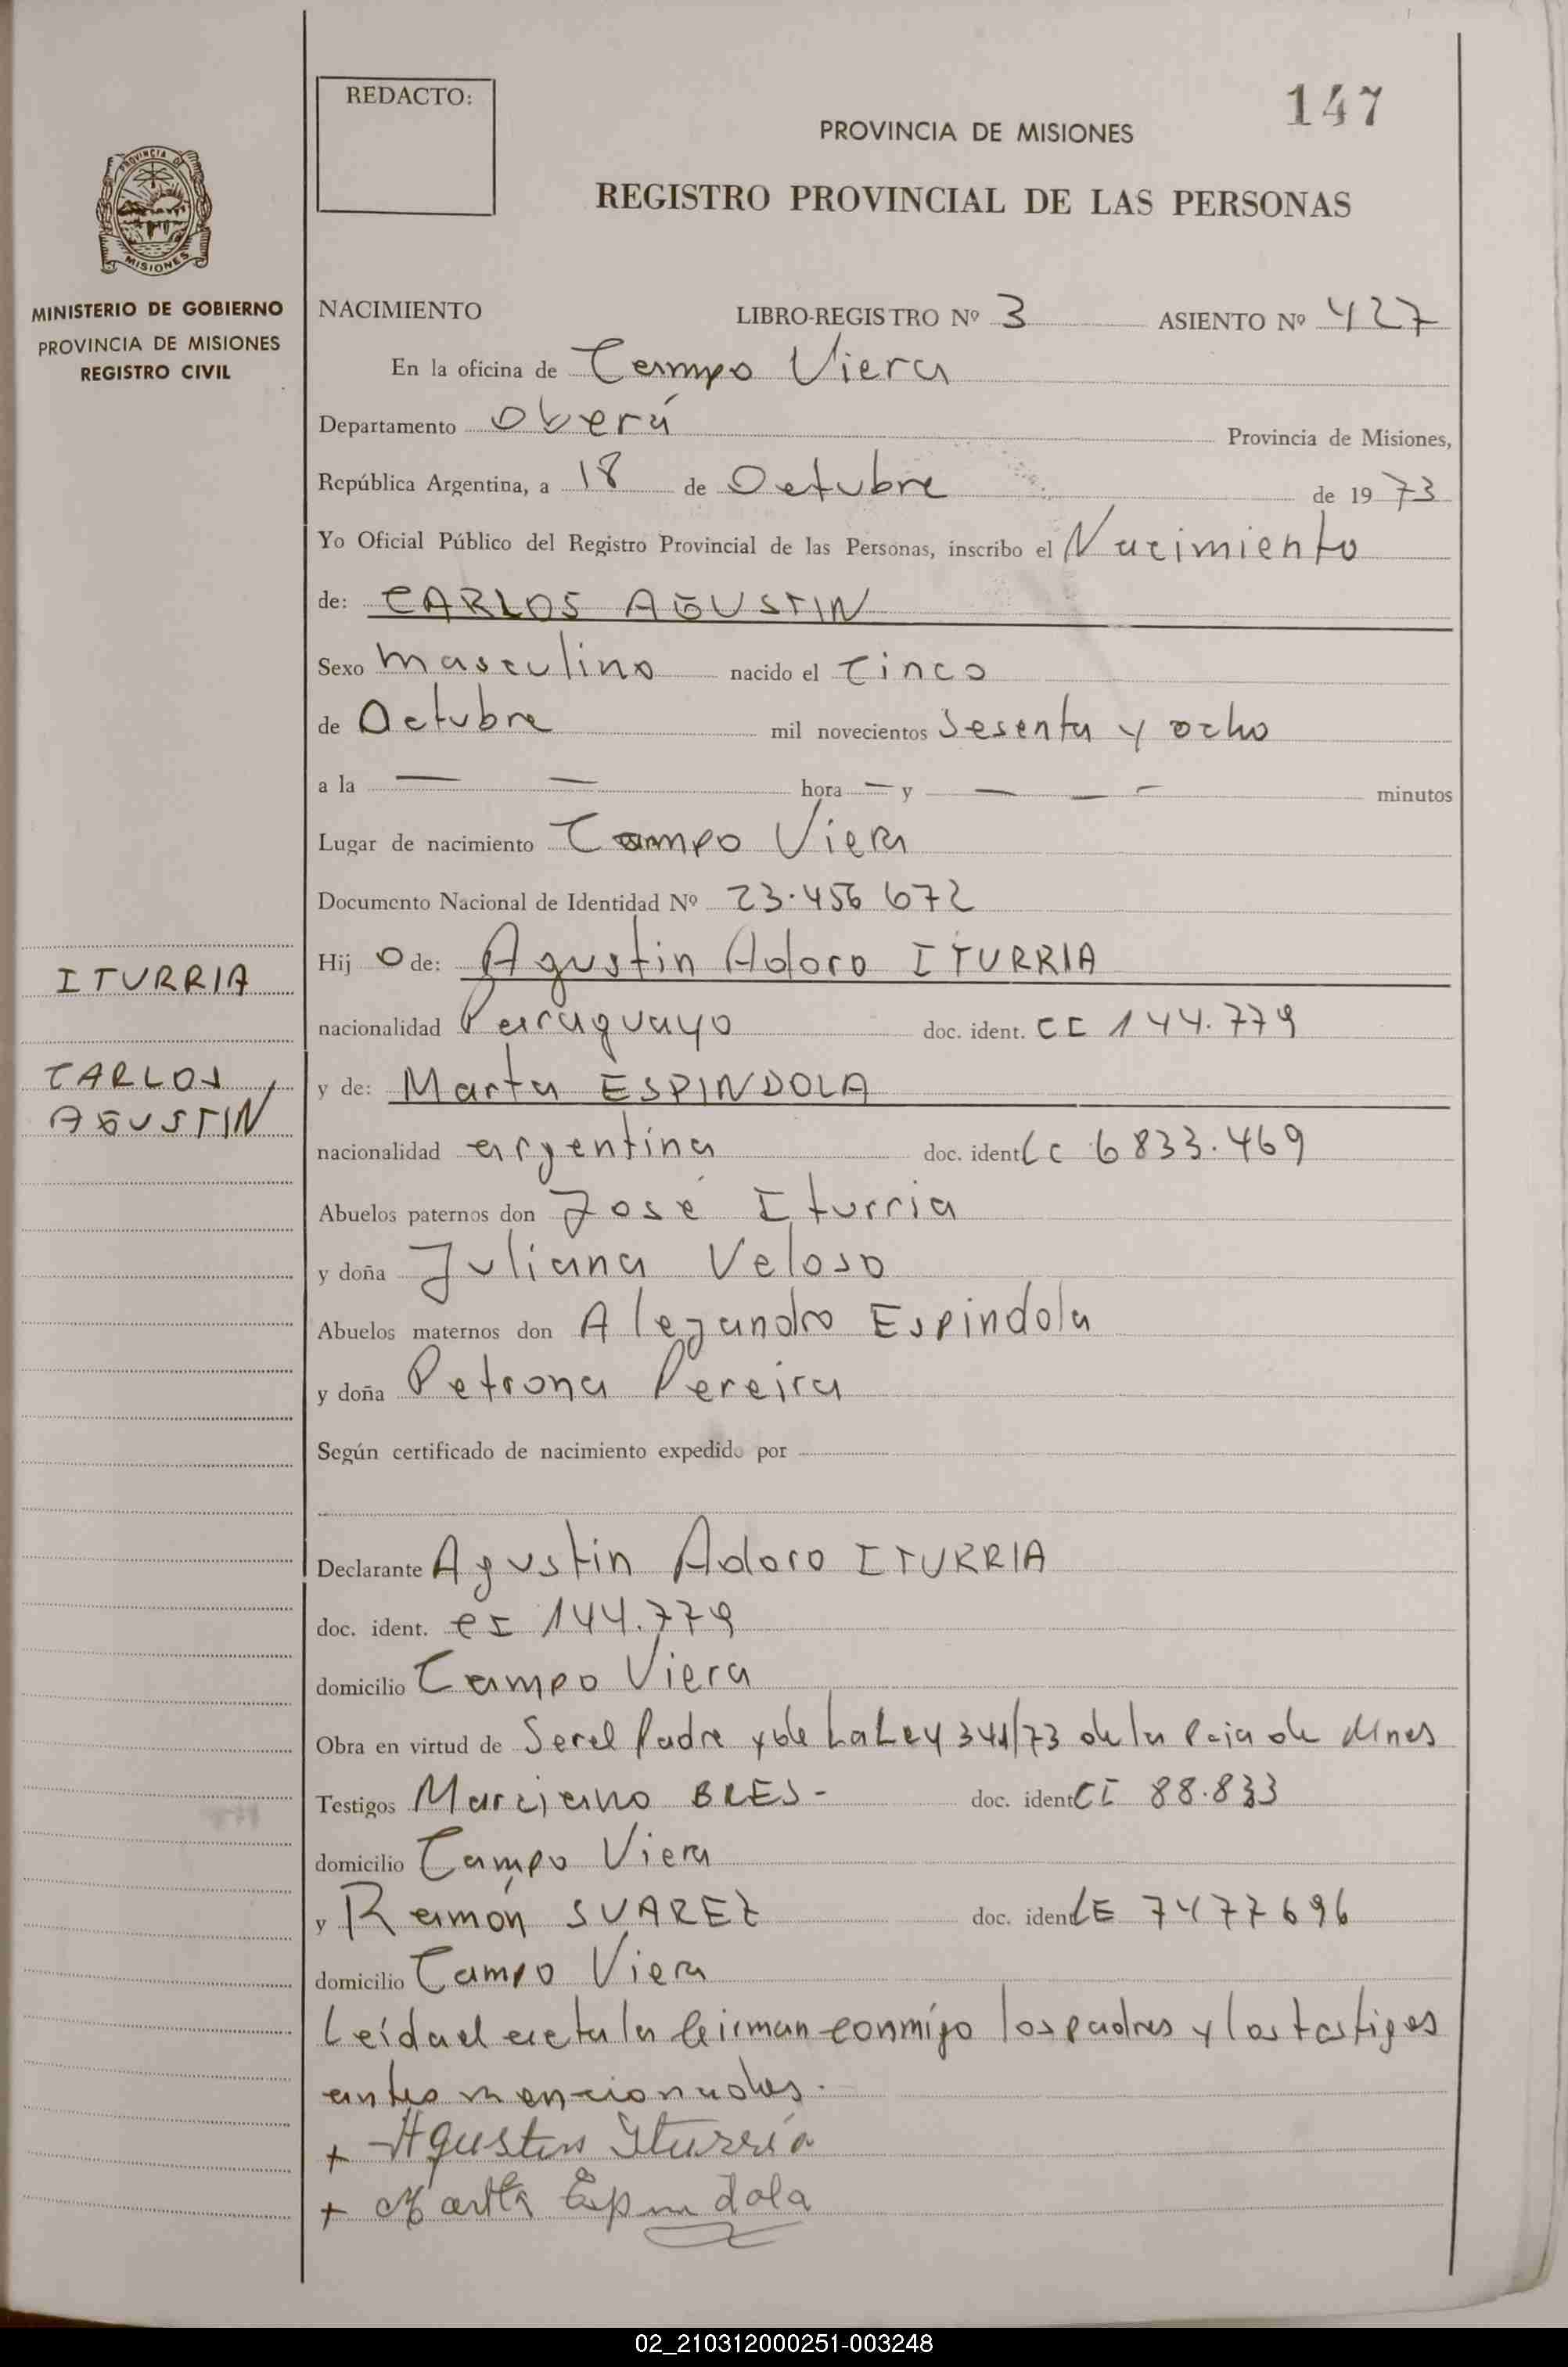 REDACTO:
147
PROVINCIA DE MISIONES
REGISTRO PROVINCIAL DE LAS PERSONAS
PROVINCIA DE
MISIONES
MINISTERIO DE GOBIERNO
PROVINCIA DE MISIONES
REGISTRO CIVIL
NACIMIENTO LIBRO-REGISTRO Nº 3 ASIENTO Nº 427
En la oficina de Campo Viera
Departamento Oberá Provincia de Misiones,
República Argentina, a 18 de Octubre de 1973
Yo Oficial Público del Registro Provincial de las Personas, inscribo el Nacimiento
de: CARLOS AGUSTIN
Sexo masculino nacido el Cinco
de Octubre mil novecientos Sesenta y ocho
a la — — hora — y — — — minutos
Lugar de nacimiento Campo Viera
Documento Nacional de Identidad Nº 23.456 672
Hij o de: Agustin Adoro ITURRIA
ITURRIA
nacionalidad Paraguayo doc. ident. CI 144.779
CARLOS
y de: Marta ESPINDOLA
AGUSTIN
nacionalidad argentina doc. ident LC 6833.469
Abuelos paternos don José Iturria
y doña Juliana Veloso
Abuelos maternos don Alejandro Espindola
y doña Petrona Pereira
Según certificado de nacimiento expedido por
Declarante Agustin Adoro ITURRIA
doc. ident. CI 144.779
domicilio Campo Viera
Obra en virtud de Ser el Padre y de La Ley 341/73 de la Pcia de Mnes
Testigos Marciano BRES- doc. ident CI 88.833
domicilio Campo Viera
y Ramón SUAREZ doc. ident LE 7477696
domicilio Campo Viera
Leída el acta la firman conmigo los padres y los testigos
antes mencionados.
+ Agustin Iturria
+ Marta Espindola
02_210312000251-003248